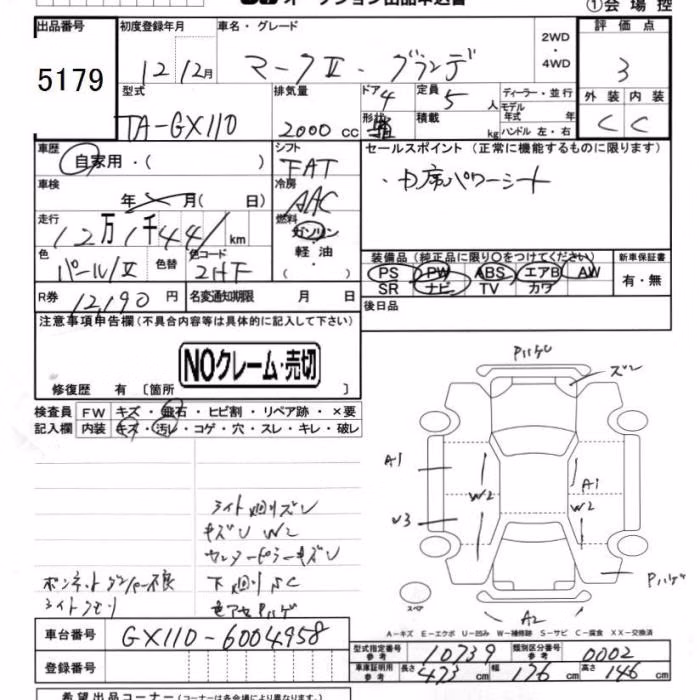 オークション出品申込書
①会場控
出品番号
5179
初度登録年月
12年12月
車名・グレード
マークⅡ・グランデ
2WD
・
4WD
評価点
3
型式
TA-GX110
排気量
2000cc
ドア
4
形状
定員
5人
積載
kg
ディーラー・並行
モデル
年式 年
ハンドル 左・右
外装 内装
C C
車歴
自家用・( )
シフト
FAT
セールスポイント (正常に機能するものに限ります)
・中席パワーシート
車検
年 月( 日)
冷房
AAC
走行
12万1千441km
燃料
ガソリン
軽油
・
( )
色
パール/Ⅱ
色替
色コード
2HF
装備品(純正品に限り○をつけてください)
新車保証書
PS PW ABS エアB AW
SR ナビ TV カワ
有・無
R券
12,190円
名変通知期限 月 日
後日品
注意事項申告欄(不具合内容等は具体的に記入して下さい)
NOクレーム・売切
修復歴 有 〔箇所 〕
検査員
記入欄
FW キズ・飛石・ヒビ割・リペア跡・×要
内装 キズ・汚レ・コゲ・穴・スレ・キレ・破レ
ハゲU
ズレ
A1
W2
A1
W2
U3
ハゲ
A2
スペア
ライト廻リズレ
キズU W2
センターピラーキズU
ボンネットダンパー不良
下廻リSC
ライトクモリ
色アセハゲ
A-キズ E-エクボ U-凹み W-補修跡 S-サビ C-腐食 XX-交換済
車台番号
GX110-6004958
型式指定番号
参考
10739
類別区分番号
参考
0002
登録番号
車庫証明用
参考
長さ 473cm 幅 176cm 高さ 146cm
希望出品コーナー(コーナーは各会場により異なります)